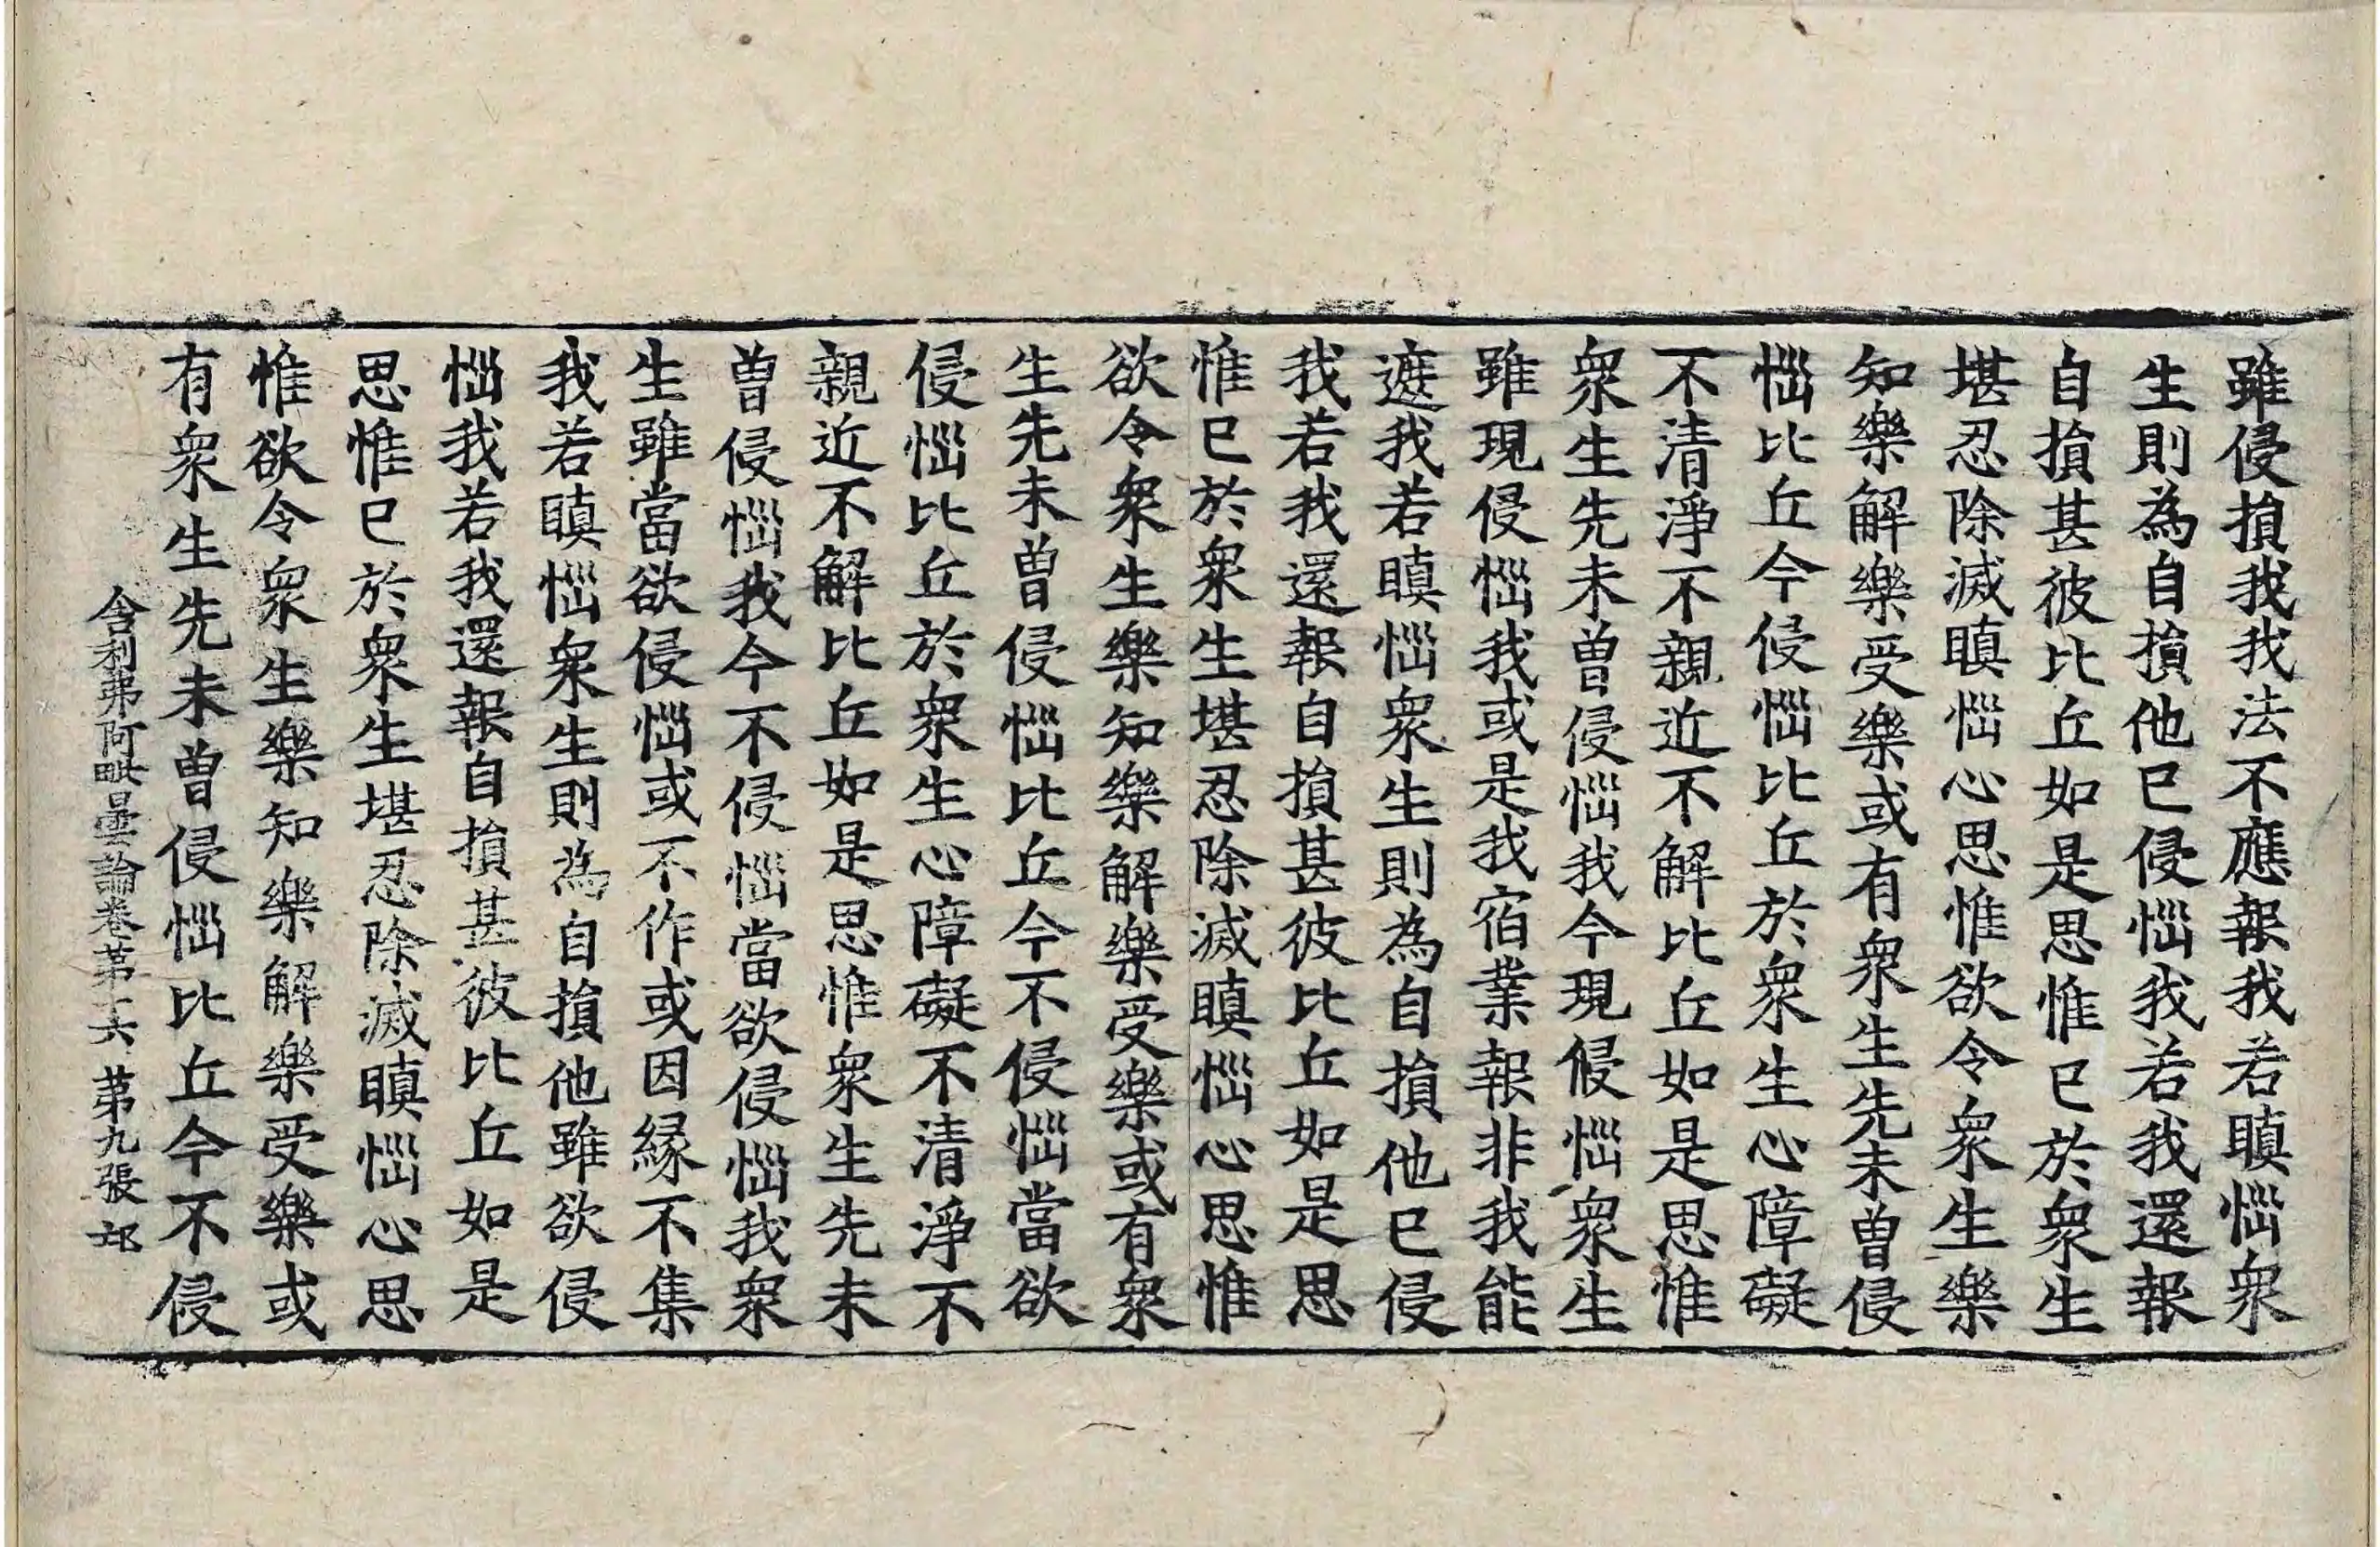 雖侵損我我法不應報我若瞋惱衆
生則為自損他已侵惱我若我還報
自損甚彼比丘如是思惟已於衆生
堪忍除滅瞋惱心思惟欲令衆生樂
知樂解樂受樂或有衆生先未曾侵
惱比丘今侵惱比丘於衆生心障礙
不清淨不親近不解比丘如是思惟
衆生先未曾侵惱我今現侵惱衆生
雖現侵惱我或是我宿業報非我能
遮我若瞋惱衆生則為自損他已侵
我若我還報自損甚彼比丘如是思
惟已於衆生堪忍除滅瞋惱心思惟
欲令衆生樂知樂解樂受樂或有衆
生先未曾侵惱比丘今不侵惱當欲
侵惱比丘於衆生心障礙不清淨不
親近不解比丘如是思惟衆生先未
曾侵惱我今不侵惱當欲侵惱我衆
生雖當欲侵惱或不作或因緣不集
我若瞋惱衆生則為自損他雖欲侵
惱我若我還報自損甚彼比丘如是
思惟已於衆生堪忍除滅瞋惱心思
惟欲令衆生樂知樂解樂受樂或
有衆生先未曾侵惱比丘今不侵
舍利弗阿毗曇論卷第十六 第九張